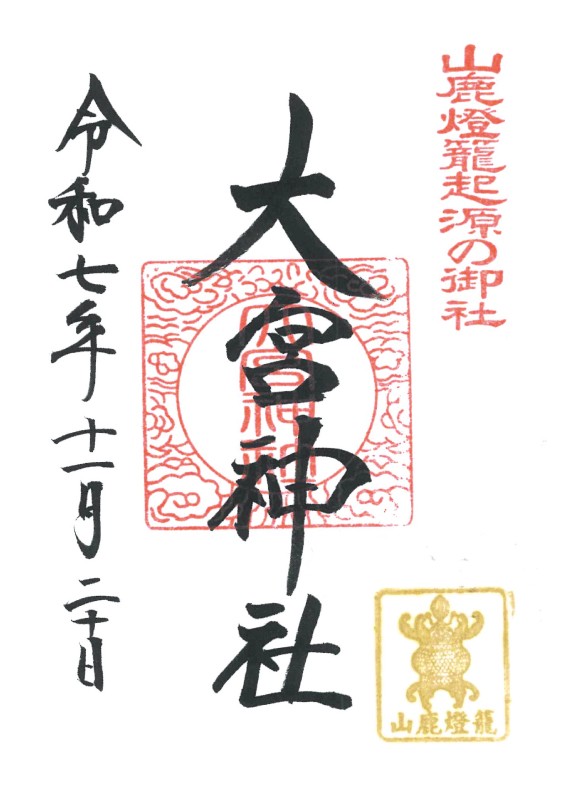 山鹿燈籠起源の御社
大宮神社
大宮神社
令和七年十一月二十日
山鹿燈籠